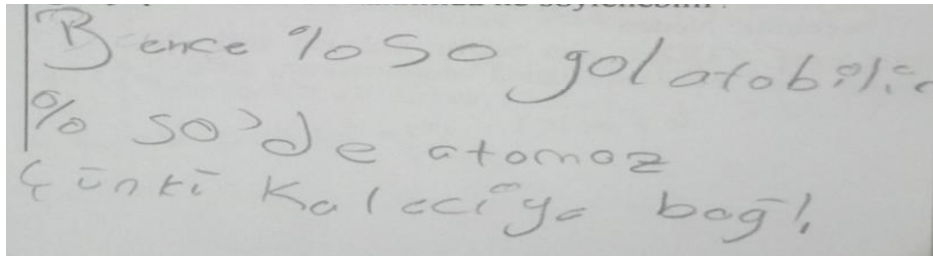 Bence %50 gol atabilir
%50'de atamaz
Çünki Kaleciye bağlı